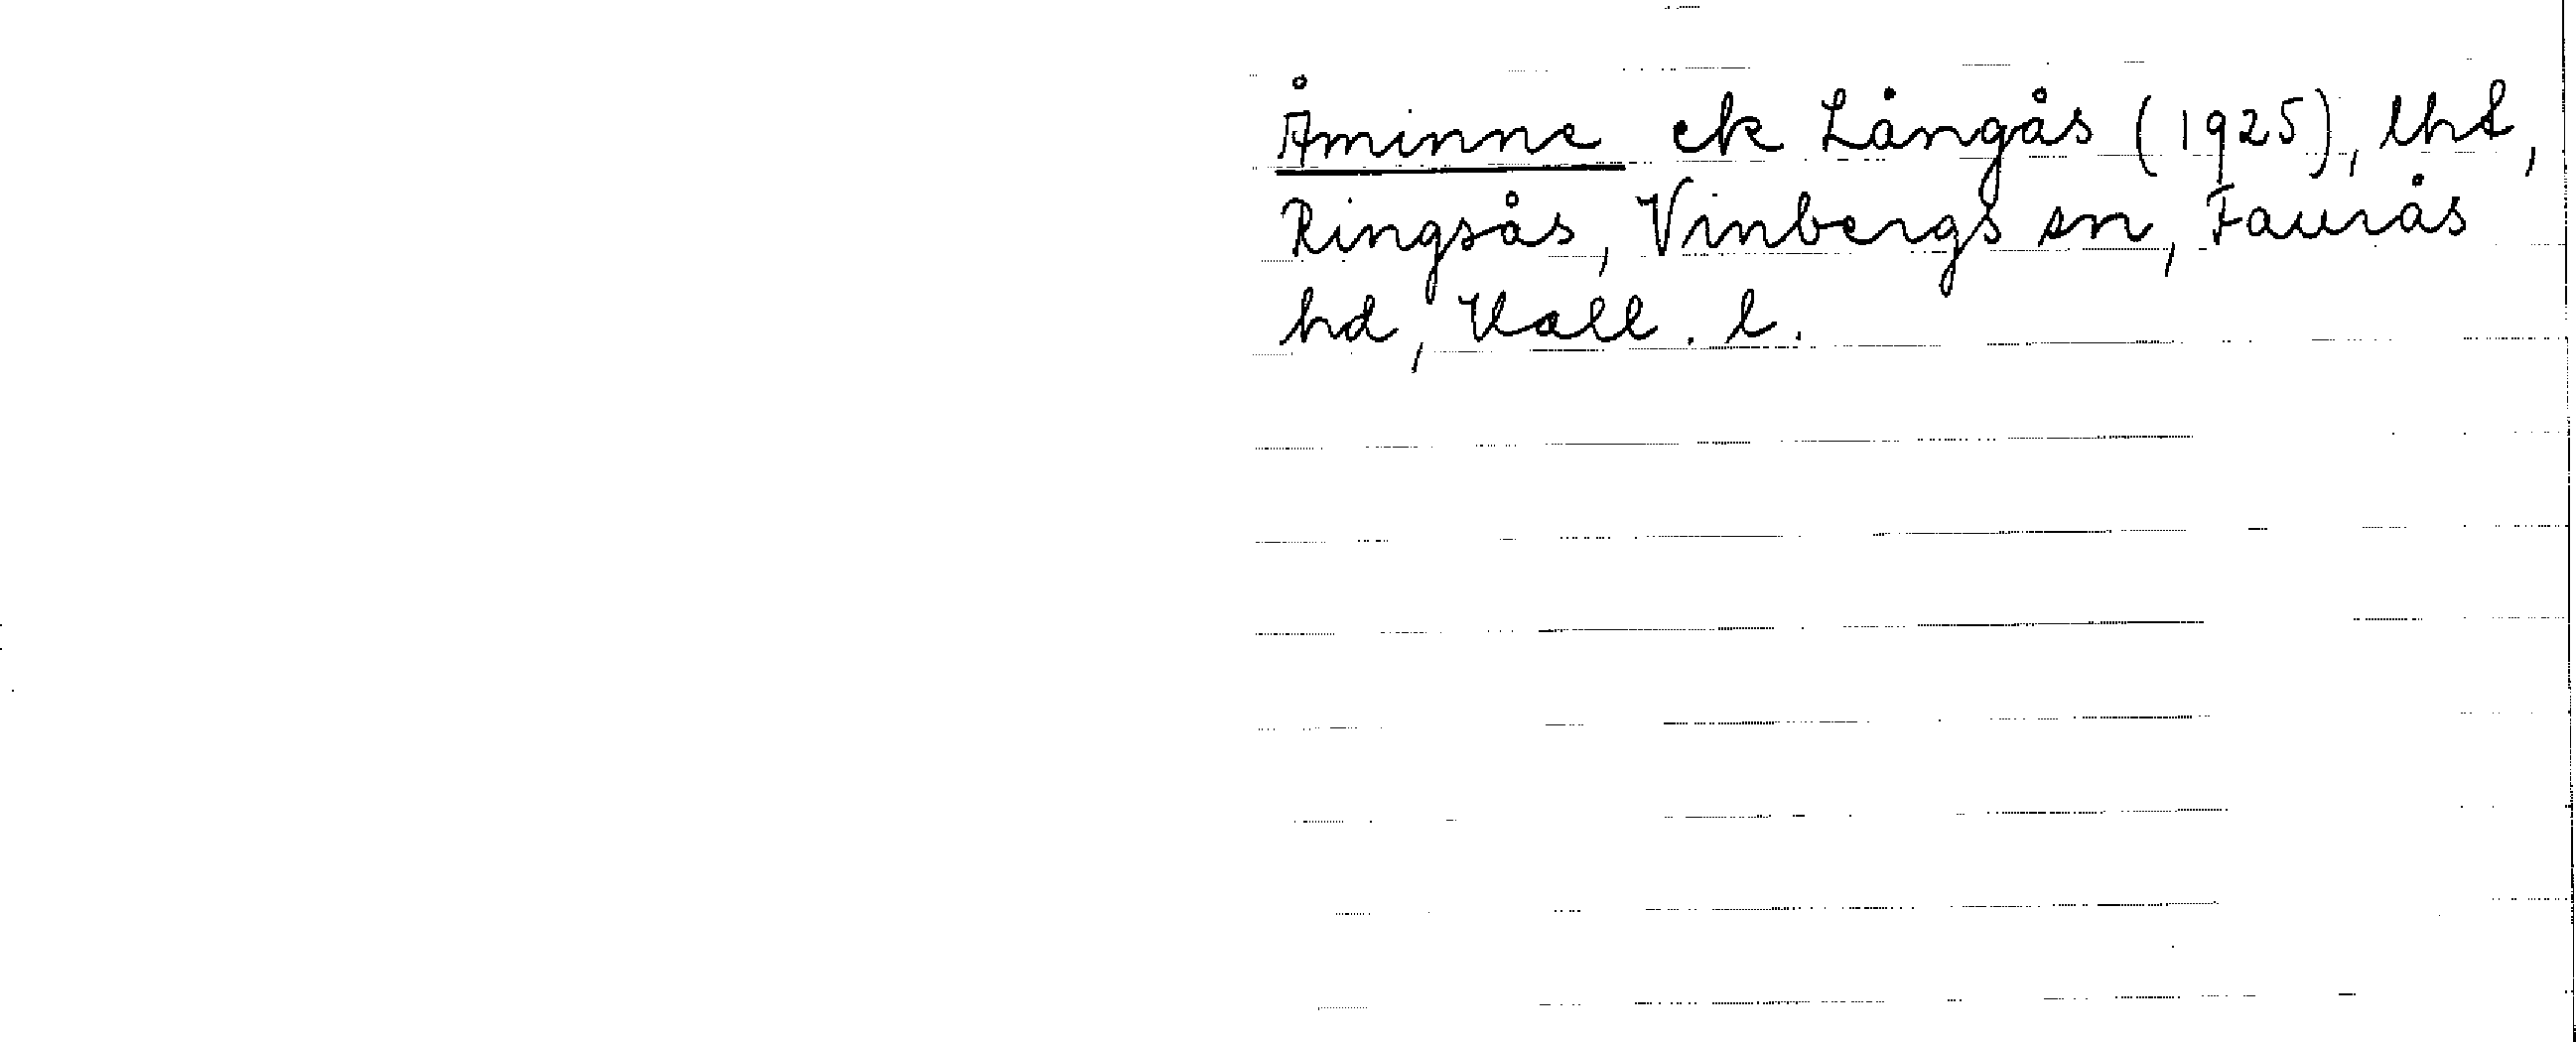 Åminne ek Långås (1925), lht,
Ringsås, Vinbergs sn, Faurås
hd, Hall. l.